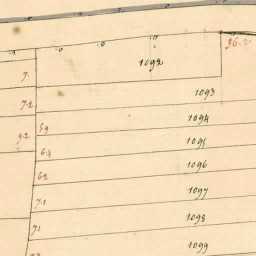 1092
1093
1094
1095
1096
1097
1098
1099
7.
7.2
59
6.4
62
7.1
71